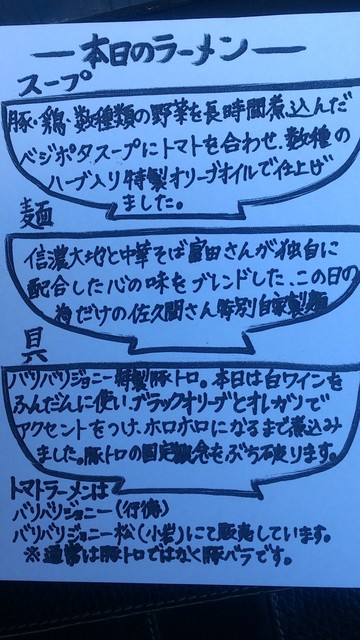 ー本日のラーメンー
スープ
豚・鶏・数種類の野菜を長時間煮込んだ
ベジポタスープにトマトを合わせ、数種の
ハーブ入り特製オリーブオイルで仕上げ
ました。
麺
信濃大地と中華そば富田さんが独自に
配合した心の味をブレンドした、この日の
為だけの佐久間さん特別自家製麺
具
バリバリジョニー特製豚トロ。本日は白ワインを
ふんだんに使い、ブラックオリーブとオレガノで
アクセントをつけ、ホロホロになるまで煮込み
ました。豚トロの固定観念をぶち破ります。
トマトラーメンは
バリバリジョニー(行徳)
バリバリジョニー松(小岩)にて販売しています。
※通常は豚トロではなく豚バラです。